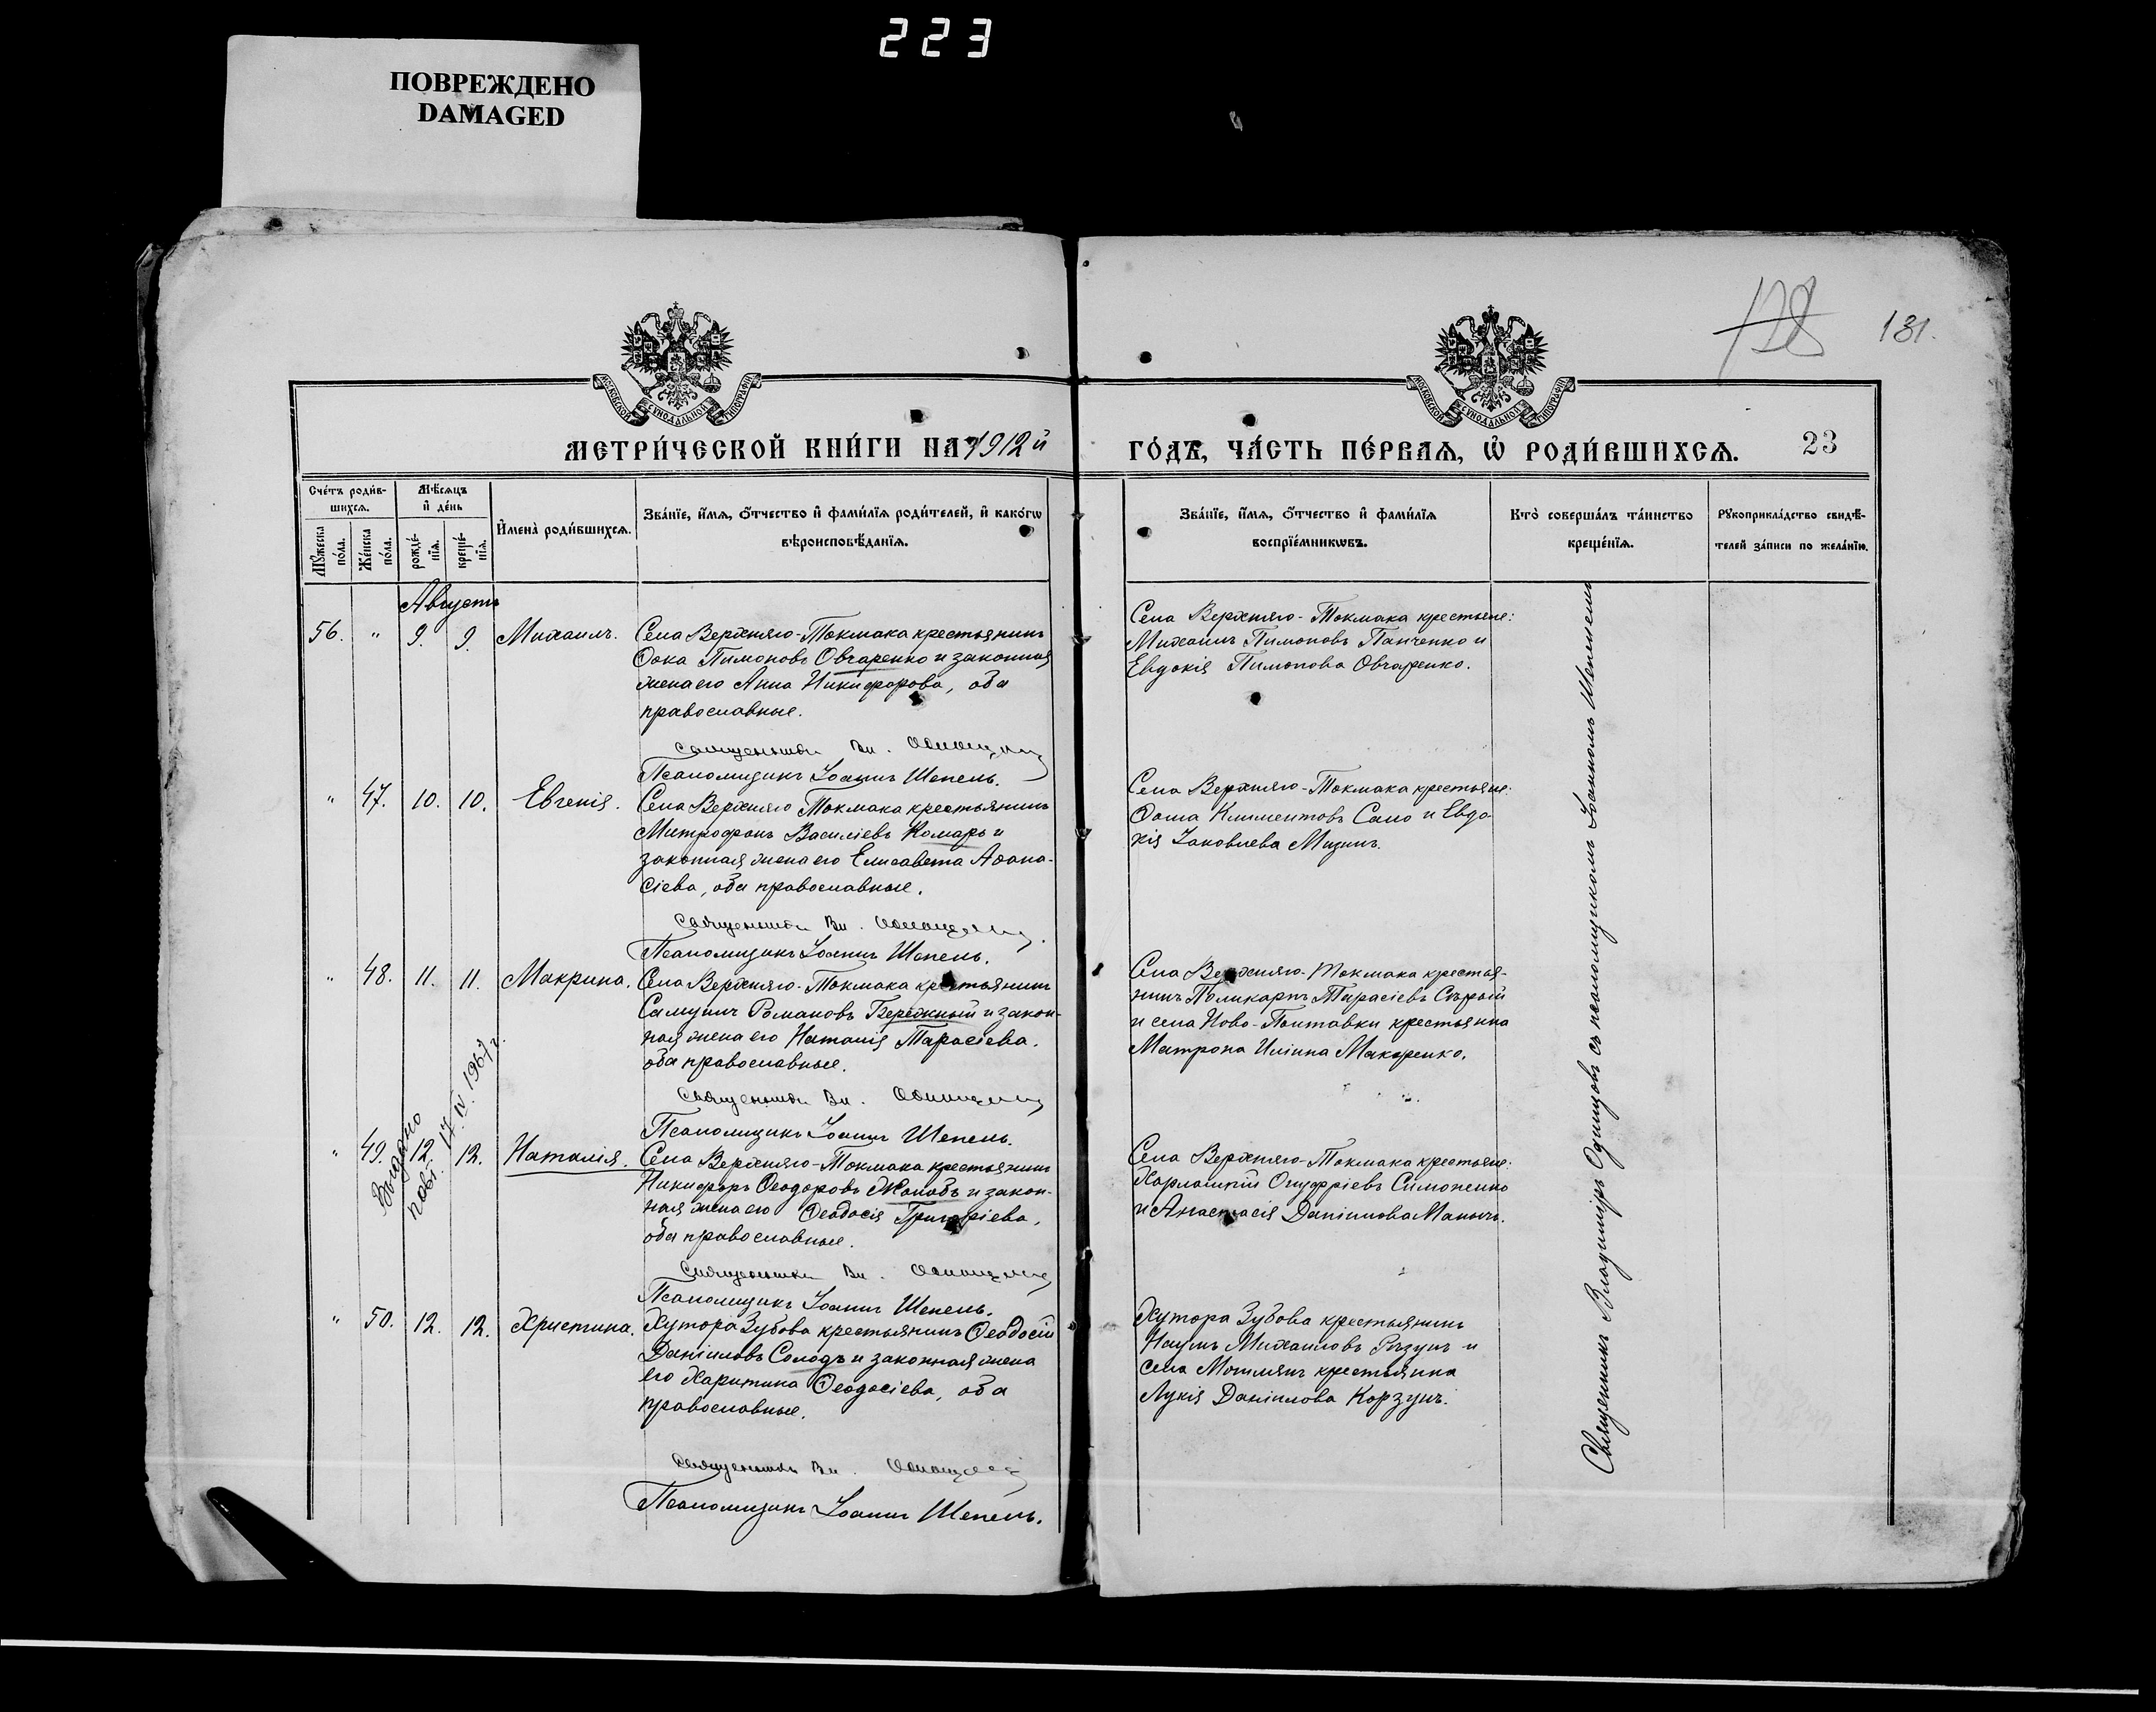 223
ПОВРЕЖДЕНО
DAMAGED
128
131.
МОСКОВСКОЙ СѴНОДАЛЬНОЙ ТИПОГРАФІИ
МОСКОВСКОЙ СѴНОДАЛЬНОЙ ТИПОГРАФІИ
МЕТРИ́ЧЕСКОЙ КНИ́ГИ НА 1912й
ГО́ДЪ, ЧА́СТЬ ПЕ́РВАѦ, Ѡ҆ РОДИ́ВШИХСѦ. 23
Сче́тъ роди́в-
шихсѧ.
Мѣ́сѧцъ
и҆ де́нь
Мꙋ́жеска
по́ла.
Же́нска
по́ла.
рожде́-
нїѧ.
креще́-
нїѧ.
И҆мена̀ роди́вшихсѧ.
Зва́нїе, и҆́мѧ, ѻ҆́тчество и҆ фами́лїѧ роди́телей, и҆ како́гѡ
вѣроисповѣ́данїѧ.
Зва́нїе, и҆́мѧ, ѻ҆́тчество и҆ фами́лїѧ
воспрїе́мникѡвъ.
Кто̀ соверша́лъ та́инство
креще́нїѧ.
Рꙋкоприкла́дство свидѣ́-
телей за́писи по жела́нїю.
Августъ
56. " 9. 9. Михаилъ.
Села Верхняго-Токмака крестьянинъ
Ѳока Пимоновъ Овчаренко и законная
жена его Анна Никифорова, оба
православные.
Священникъ Вл. Одинцовъ
Псаломщикъ Іоаннъ Шепель.
Села Верхняго-Токмака крестьяне:
Михаилъ Пимоновъ Панченко и
Евдокія Пимонова Овчаренко.
" 47. 10. 10. Евгенія.
Села Верхняго Токмака крестьянинъ
Митрофанъ Василіевъ Комаръ и
законная жена его Елисавета Аѳана-
сіева, оба православные.
Священникъ Вл. Одинцовъ
Псаломщикъ Іоаннъ Шепель.
Села Верхняго-Токмака крестьяне:
Ѳома Климентовъ Сало и Евдо-
кія Іаковлева Мизинъ.
" 48. 11. 11. Макрина.
Села Верхняго-Токмака крестьянинъ
Самуилъ Романовъ Бережный и закон-
ная жена его Наталія Тарасіева.
оба православные.
Священникъ Вл. Одинцовъ
Псаломщикъ Іоаннъ Шепель.
Села Верхняго-Токмака крестья-
нинъ Поликарпъ Тарасіевъ Сѣрый
и села Ново-Полтавки крестьянка
Матрона Иліина Макаренко.
Выдано
17.IV.1967г.
" 49. 12. 12. Наталія.
Села Верхняго-Токмака крестьянинъ
Никифоръ Ѳеодоровъ Жолобъ и закон-
ная жена его Ѳеодосія Григоріева,
оба православные.
Священникъ Вл. Одинцовъ
Псаломщикъ Іоаннъ Шепель.
Села Верхняго-Токмака крестьяне:
Харлампій Онуфріевъ Симоненко
и Анастасія Даніилова Манычъ.
" 50. 12. 12. Христина.
Хутора Зубова крестьянинъ Ѳеодосій
Даніиловъ Солодъ и законная жена
его Харитина Ѳеодосіева, оба
православные.
Священникъ Вл. Одинцовъ
Псаломщикъ Іоаннъ Шепель.
Хутора Зубова крестьянинъ
Наумъ Михаиловъ Рѣзунъ и
села Могилянъ крестьянка
Лукія Даніилова Корзунъ.
Священникъ Владиміръ Одинцовъ съ псаломщикомъ Іоанномъ Шепелемъ